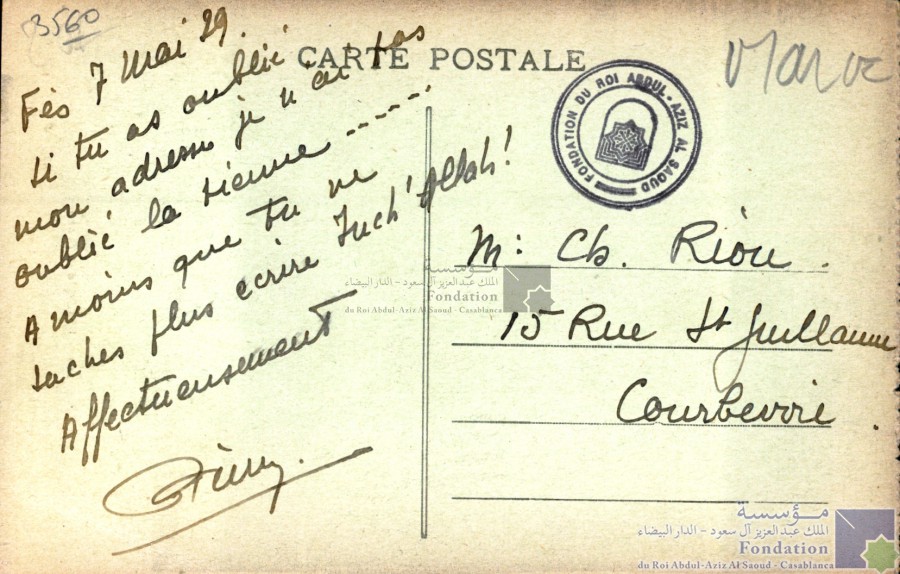 3560
Fès 7 Mai 29.
CARTE POSTALE
Maroc
Si tu as oublié
mon adresse je n'ai pas
oublié la tienne ------
A moins que tu ne
saches plus écrire Inch' Allah!
Affectueusement
FONDATION DU ROI ABDUL-AZIZ AL SAOUD
M: Ch. Riou.
15 Rue St Guillaume
Courbevoie.
مؤسسة
الملك عبد العزيز آل سعود - الدار البيضاء
Fondation
du Roi Abdul-Aziz Al Saoud - Casablanca
مؤسسة
الملك عبد العزيز آل سعود - الدار البيضاء
Fondation
du Roi Abdul-Aziz Al Saoud - Casablanca